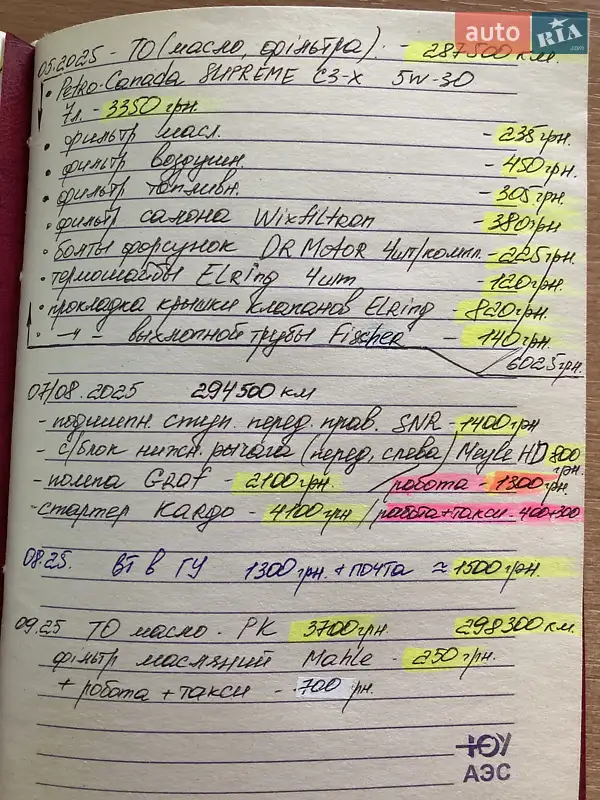 auto RIA .com
05.2025 - ТО (масло, фільтра). - 287500 км.
• Petro-Canada SUPREME C3-X 5W-30
7л. - 3350 грн.
• фильтр масл. - 235 грн.
• фильтр воздушн. - 450 грн.
• фильтр топливн. - 305 грн.
• фильтр салона Wixfiltron - 380 грн
• болты форсунок DR MOTOR 4шт/компл. - 225 грн.
• термошайбы ELRing 4шт - 120 грн.
• прокладка крышки клапанов ELRing - 820 грн.
• -"- выхлопной трубы Fischer - 140 грн.
6025 грн.
07/08.2025 294500 км
- подшипн. ступ. перед. прав. SNR - 1400 грн
- с/блок нижн. рычага (перед, слева) Meyle HD 800 грн.
- помпа Graf - 2100 грн. работа - 1300 грн.
- стартер Kargo - 4100 грн / работа+такси - 400+300
08.25. ВТ в ГУ 1300 грн. + почта ≈ 1500 грн.
09.25 ТО масло. PK 3700 грн. 298300 км.
фільтр масляний Mahle - 250 грн.
+ робота + такси - 700 грн.
ЮУ
АЭС